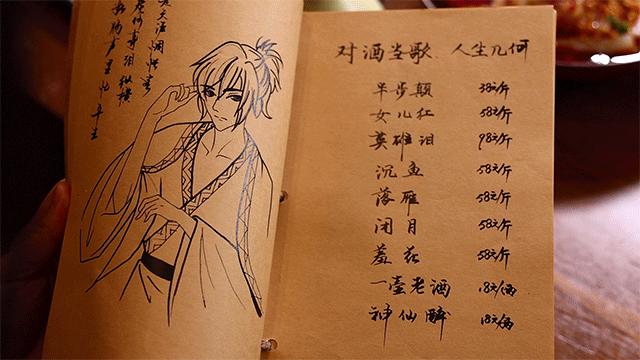 何事泪纵横
声里忆平生
对酒当歌 人生几何
半步颠 38元/斤
女儿红 58元/斤
英雄泪 98元/斤
沉鱼 58元/斤
落雁 58元/斤
闭月 58元/斤
羞花 58元/斤
一壶老酒 18元/两
神仙醉 18元/两